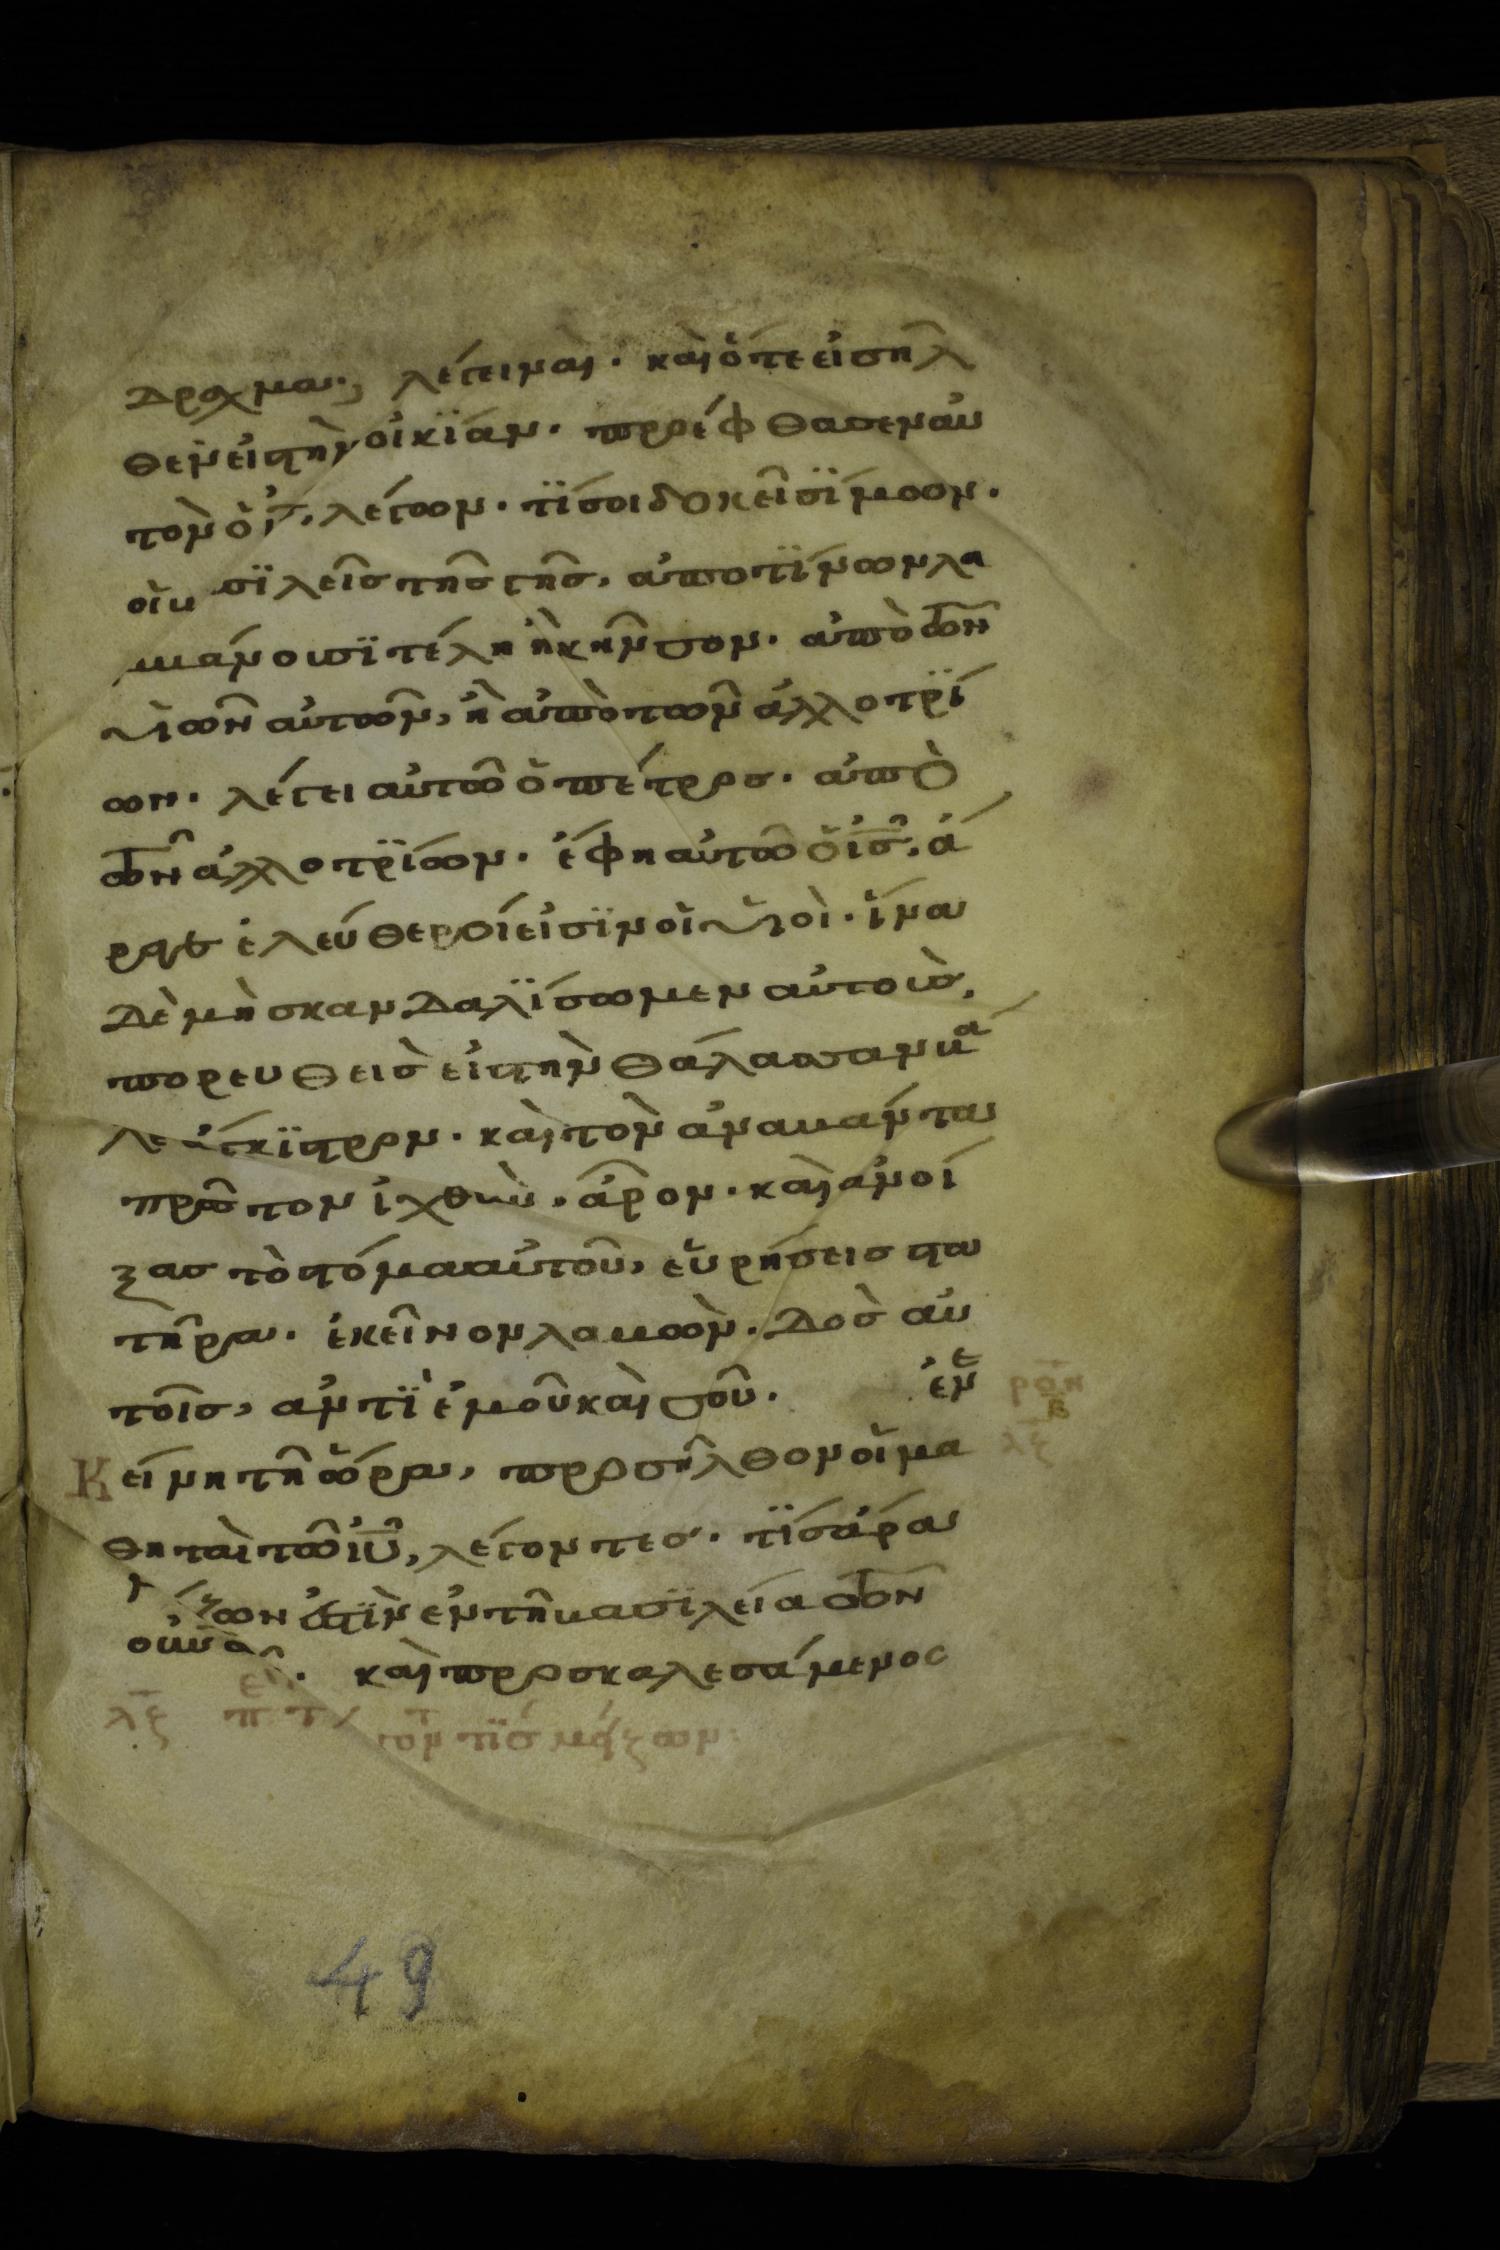 δραχμα; λέγει ναί· καὶ ὅτε εἰσηλ
θεν εἰς τὴν οἰκΐαν· προέφθασεν αὐ
τὸν ὁ ις, λέγων· τΐ σοι δοκεῖ σΐμων·
οἱ βασϊλεῖς τῆς γῆς, ἀπὸ τΐνων λα
μβάνουσϊ τέλη ἢ κῆνσον· ἀπὸ τῶν
υἱῶν αὐτῶν, ἢ ἀπὸ τῶν ἀλλοτρΐ
ων· λέγει αὐτῶ ὁ πέτρος· ἀπὸ
τῶν ἀλλοτρΐων· ἔφη αὐτῶ ὁ ις, ἄ
ραγε ἐλεύθεροί εἰσϊν οἱ υἱοὶ· ἵνα
δὲ μὴ σκανδαλΐσωμεν αὐτοὺς,
πορευθεὶς εἰς τὴν θάλασσαν βά
λε ἄγκϊστρον· καὶ τὸν ἀναβάντα
πρῶτον ἰχθὺν, ἆρον· καὶ ἀνοί
ξας τὸ στόμα αὐτοῦ, εὑρήσεις στα
τῆρα· ἐκεῖνον λαβὼν· δὸς αὐ
τοῖς, ἀντῒ ἐμοῦ καὶ σοῦ· ἐν ροη β
Κείνη τῆ ὥρα, προσῆλθον οἱ μα
θηταὶ τῶ ιυ, λέγοντες· τΐς ἄρα
μείζων ἐστὶν ἐν τῆ βασϊλεία τῶν
οὐνῶ· καὶ προσκαλεσάμενος
τΐς μείζων
49